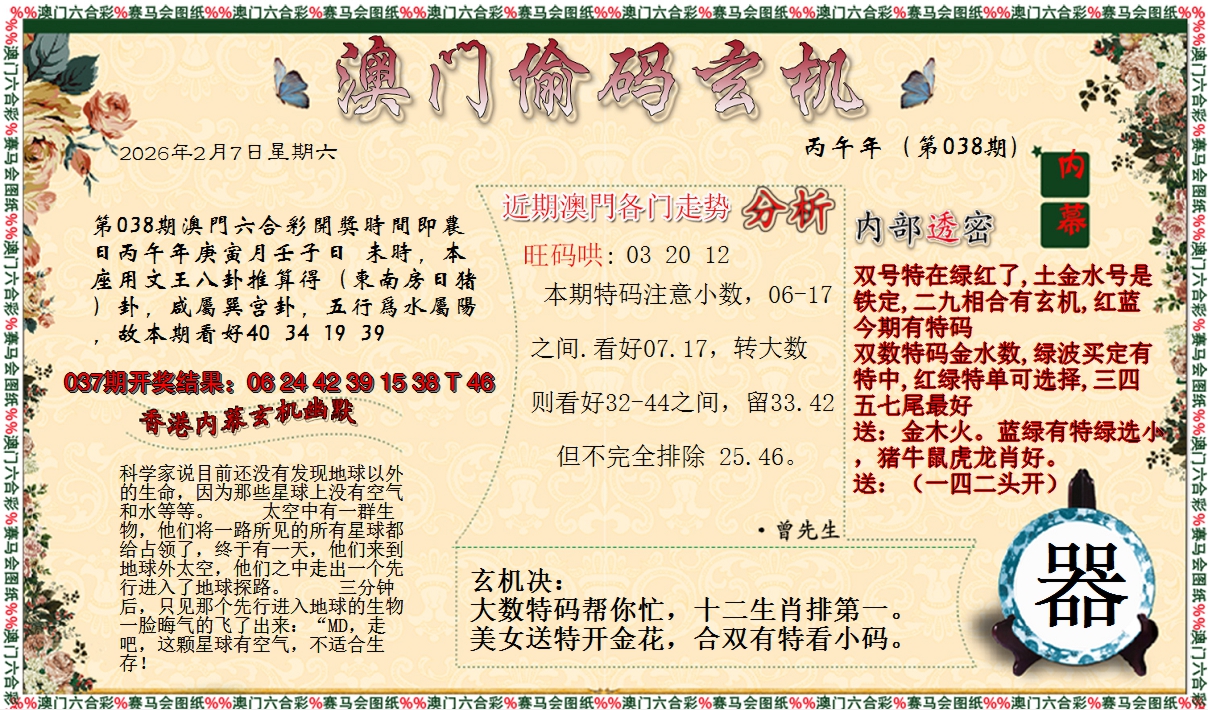 %%澳门六合彩%赛马会图纸%%澳门六合彩%赛马会图纸%%澳门六合彩%赛马会图纸%%澳门六合彩%赛马会图纸%%澳门六合彩%赛马会图纸%%澳门六合彩%赛马会图纸%%
澳门偷码玄机
2026年2月7日星期六
丙午年（第038期）
内幕
第038期澳門六合彩開獎時間即農
日丙午年庚寅月壬子日 未時，本
座用文王八卦推算得（東南房日猪
）卦，咸屬巽宫卦，五行爲水屬陽
，故本期看好40 34 19 39
037期开奖结果：06 24 42 39 15 38 T 46
香港内幕玄机幽默
科学家说目前还没有发现地球以外
的生命，因为那些星球上没有空气
和水等等。 太空中有一群生
物，他们将一路所见的所有星球都
给占领了，终于有一天，他们来到
地球外太空，他们之中走出一个先
行进入了地球探路。 三分钟
后，只见那个先行进入地球的生物
一脸晦气的飞了出来：“MD，走
吧，这颗星球有空气，不适合生
存！
近期澳門各门走势 分析
旺码哄: 03 20 12
本期特码注意小数，06-17
之间.看好07.17，转大数
则看好32-44之间，留33.42
但不完全排除 25.46。
·曾先生
内部透密
双号特在绿红了,土金水号是
铁定,二九相合有玄机,红蓝
今期有特码
双数特码金水数,绿波买定有
特中,红绿特单可选择,三四
五七尾最好
送：金木火。蓝绿有特绿选小
，猪牛鼠虎龙肖好。
送：（一四二头开）
玄机决：
大数特码帮你忙，十二生肖排第一。
美女送特开金花，合双有特看小码。
器
%%澳门六合彩%赛马会图纸%%澳门六合彩%赛马会图纸%%澳门六合彩%赛马会图纸%%澳门六合彩%赛马会图纸%%澳门六合彩%赛马会图纸%%澳门六合彩%赛马会图纸%%